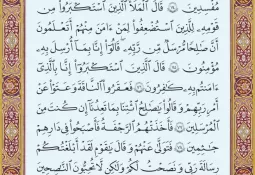 مُفْسِدِينَ ۝ قَالَ ٱلْمَلَأُ ٱلَّذِينَ ٱسْتَكْبَرُوا۟ مِن
قَوْمِهِۦ لِلَّذِينَ ٱسْتُضْعِفُوا۟ لِمَنْ ءَامَنَ مِنْهُمْ أَتَعْلَمُونَ
أَنَّ صَٰلِحًا مُّرْسَلٌ مِّن رَّبِّهِۦ ۚ قَالُوٓا۟ إِنَّا بِمَآ أُرْسِلَ بِهِۦ
مُؤْمِنُونَ ۝ قَالَ ٱلَّذِينَ ٱسْتَكْبَرُوٓا۟ إِنَّا بِٱلَّذِىٓ
ءَامَنتُم بِهِۦ كَٰفِرُونَ ۝ فَعَقَرُوا۟ ٱلنَّاقَةَ وَعَتَوْا۟ عَنْ
أَمْرِ رَبِّهِمْ وَقَالُوا۟ يَٰصَٰلِحُ ٱئْتِنَا بِمَا تَعِدُنَآ إِن كُنتَ مِنَ
ٱلْمُرْسَلِينَ ۝ فَأَخَذَتْهُمُ ٱلرَّجْفَةُ فَأَصْبَحُوا۟ فِى دَارِهِمْ
جَٰثِمِينَ ۝ فَتَوَلَّىٰ عَنْهُمْ وَقَالَ يَٰقَوْمِ لَقَدْ أَبْلَغْتُكُمْ
رِسَالَةَ رَبِّى وَنَصَحْتُ لَكُمْ وَلَٰكِن لَّا تُحِبُّونَ ٱلنَّٰصِحِينَ